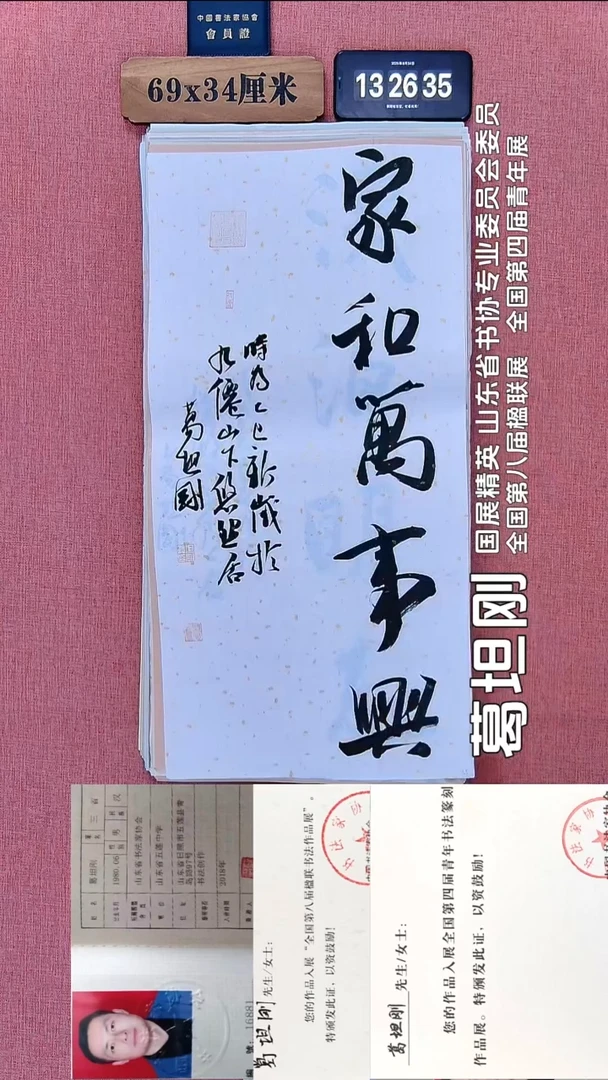 中國書法家協會
會員證
69x34厘米
13 26 35
家和萬事興
時為乙巳新歲於
九僊山下悠然居
葛坦剛
国展精英 山东省书协专业委员会委员
全国第八届楹联展 全国第四届青年展
葛坦刚
葛坦刚 先生/女士:
您的作品入展“全国第八届楹联书法作品展”。
特颁发此证,以资鼓励!
葛坦刚 先生/女士:
您的作品入展全国第四届青年书法篆刻
作品展。特颁发此证,以资鼓励!
山东省书法家协会
山东省五莲中学
2018年